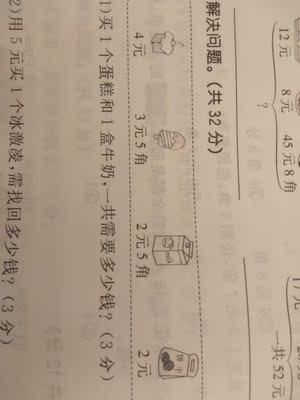 12元
8元
45元8角
?
17元
一共52元
解决问题。(共32分)
4元
3元5角
2元5角
2元
milk
饼干
1)买1个蛋糕和1盒牛奶,一共需要多少钱?(3分)
2)用5元买1个冰激凌,需找回多少钱?(3分)